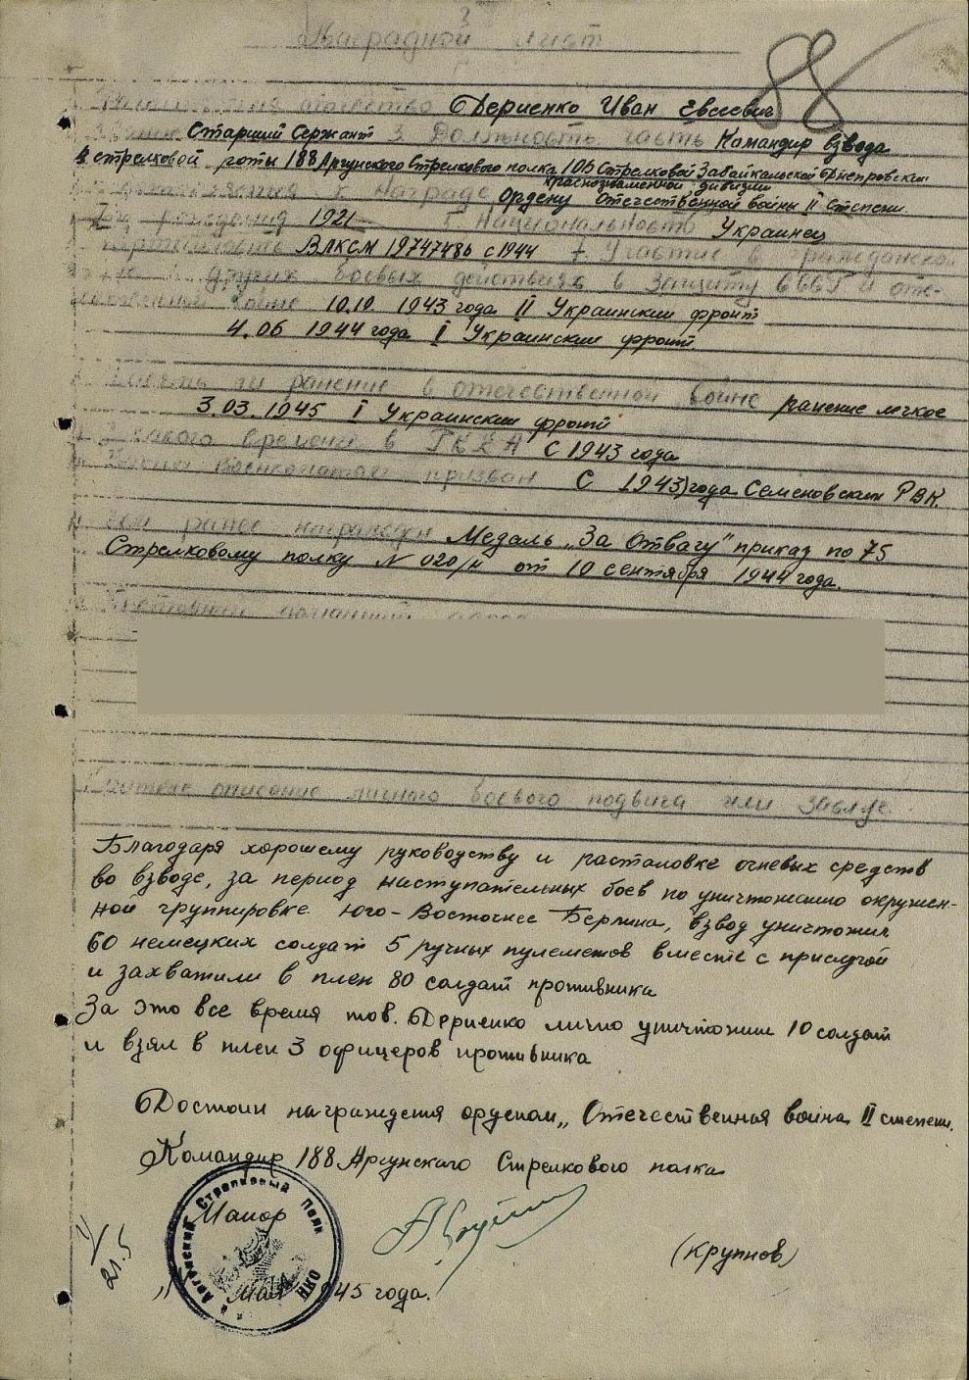 3
Наградной лист
88
Фамилия имя отчество Дериенко Иван Евсеевич
Звание Старший Сержант 3. Должность часть Командир взвода
4 стрелковой роты 188 Аргунского Стрелкового полка 106 Стрелковой Забайкальской Днепровской
Краснознаменной дивизии
Представляется к Награде Ордену Отечественной войны II Степени.
Год рождения 1921 Национальность Украинец
партийность ВЛКСМ 19747486 с 1944 7. Участие в гражданской
других боевых действиях в защиту СССР и оте-
чественной войне 10.10. 1943 года II Украинский фронт
4.06 1944 года I Украинский фронт.
Имеет ли ранение в отечественной войне ранение легкое
3.03.1945 I Украинский фронт
С какого времени в РККА С 1943 года
Каким военкоматом призван С 1943 года Семеновским РВК.
Чем ранее награжден Медаль „За Отвагу" приказ по 75
Стрелковому полку N 020/н от 10 сентября 1944 года.
Постоянный домашний адрес
Краткое описание личного боевого подвига или заслуг
Благодаря хорошему руководству и растановке огневых средств
во взводе, за период наступательных боев по уничтожению окружен-
ной группировке Юго-Восточнее Берлина, взвод уничтожил
60 немецких солдат 5 ручных пулеметов вместе с прислугой
и захватили в плен 80 солдат противника
За это все время тов. Дериенко лично уничтожил 10 солдат
и взял в плен 3 офицеров противника
Достоин награждения орденом „Отечественная война II степени.
Командир 188 Аргунского Стрелкового полка
Майор
(Крупнов)
21.5
" Мая 1945 года.
Аргунский Стрелковый Полк НКО